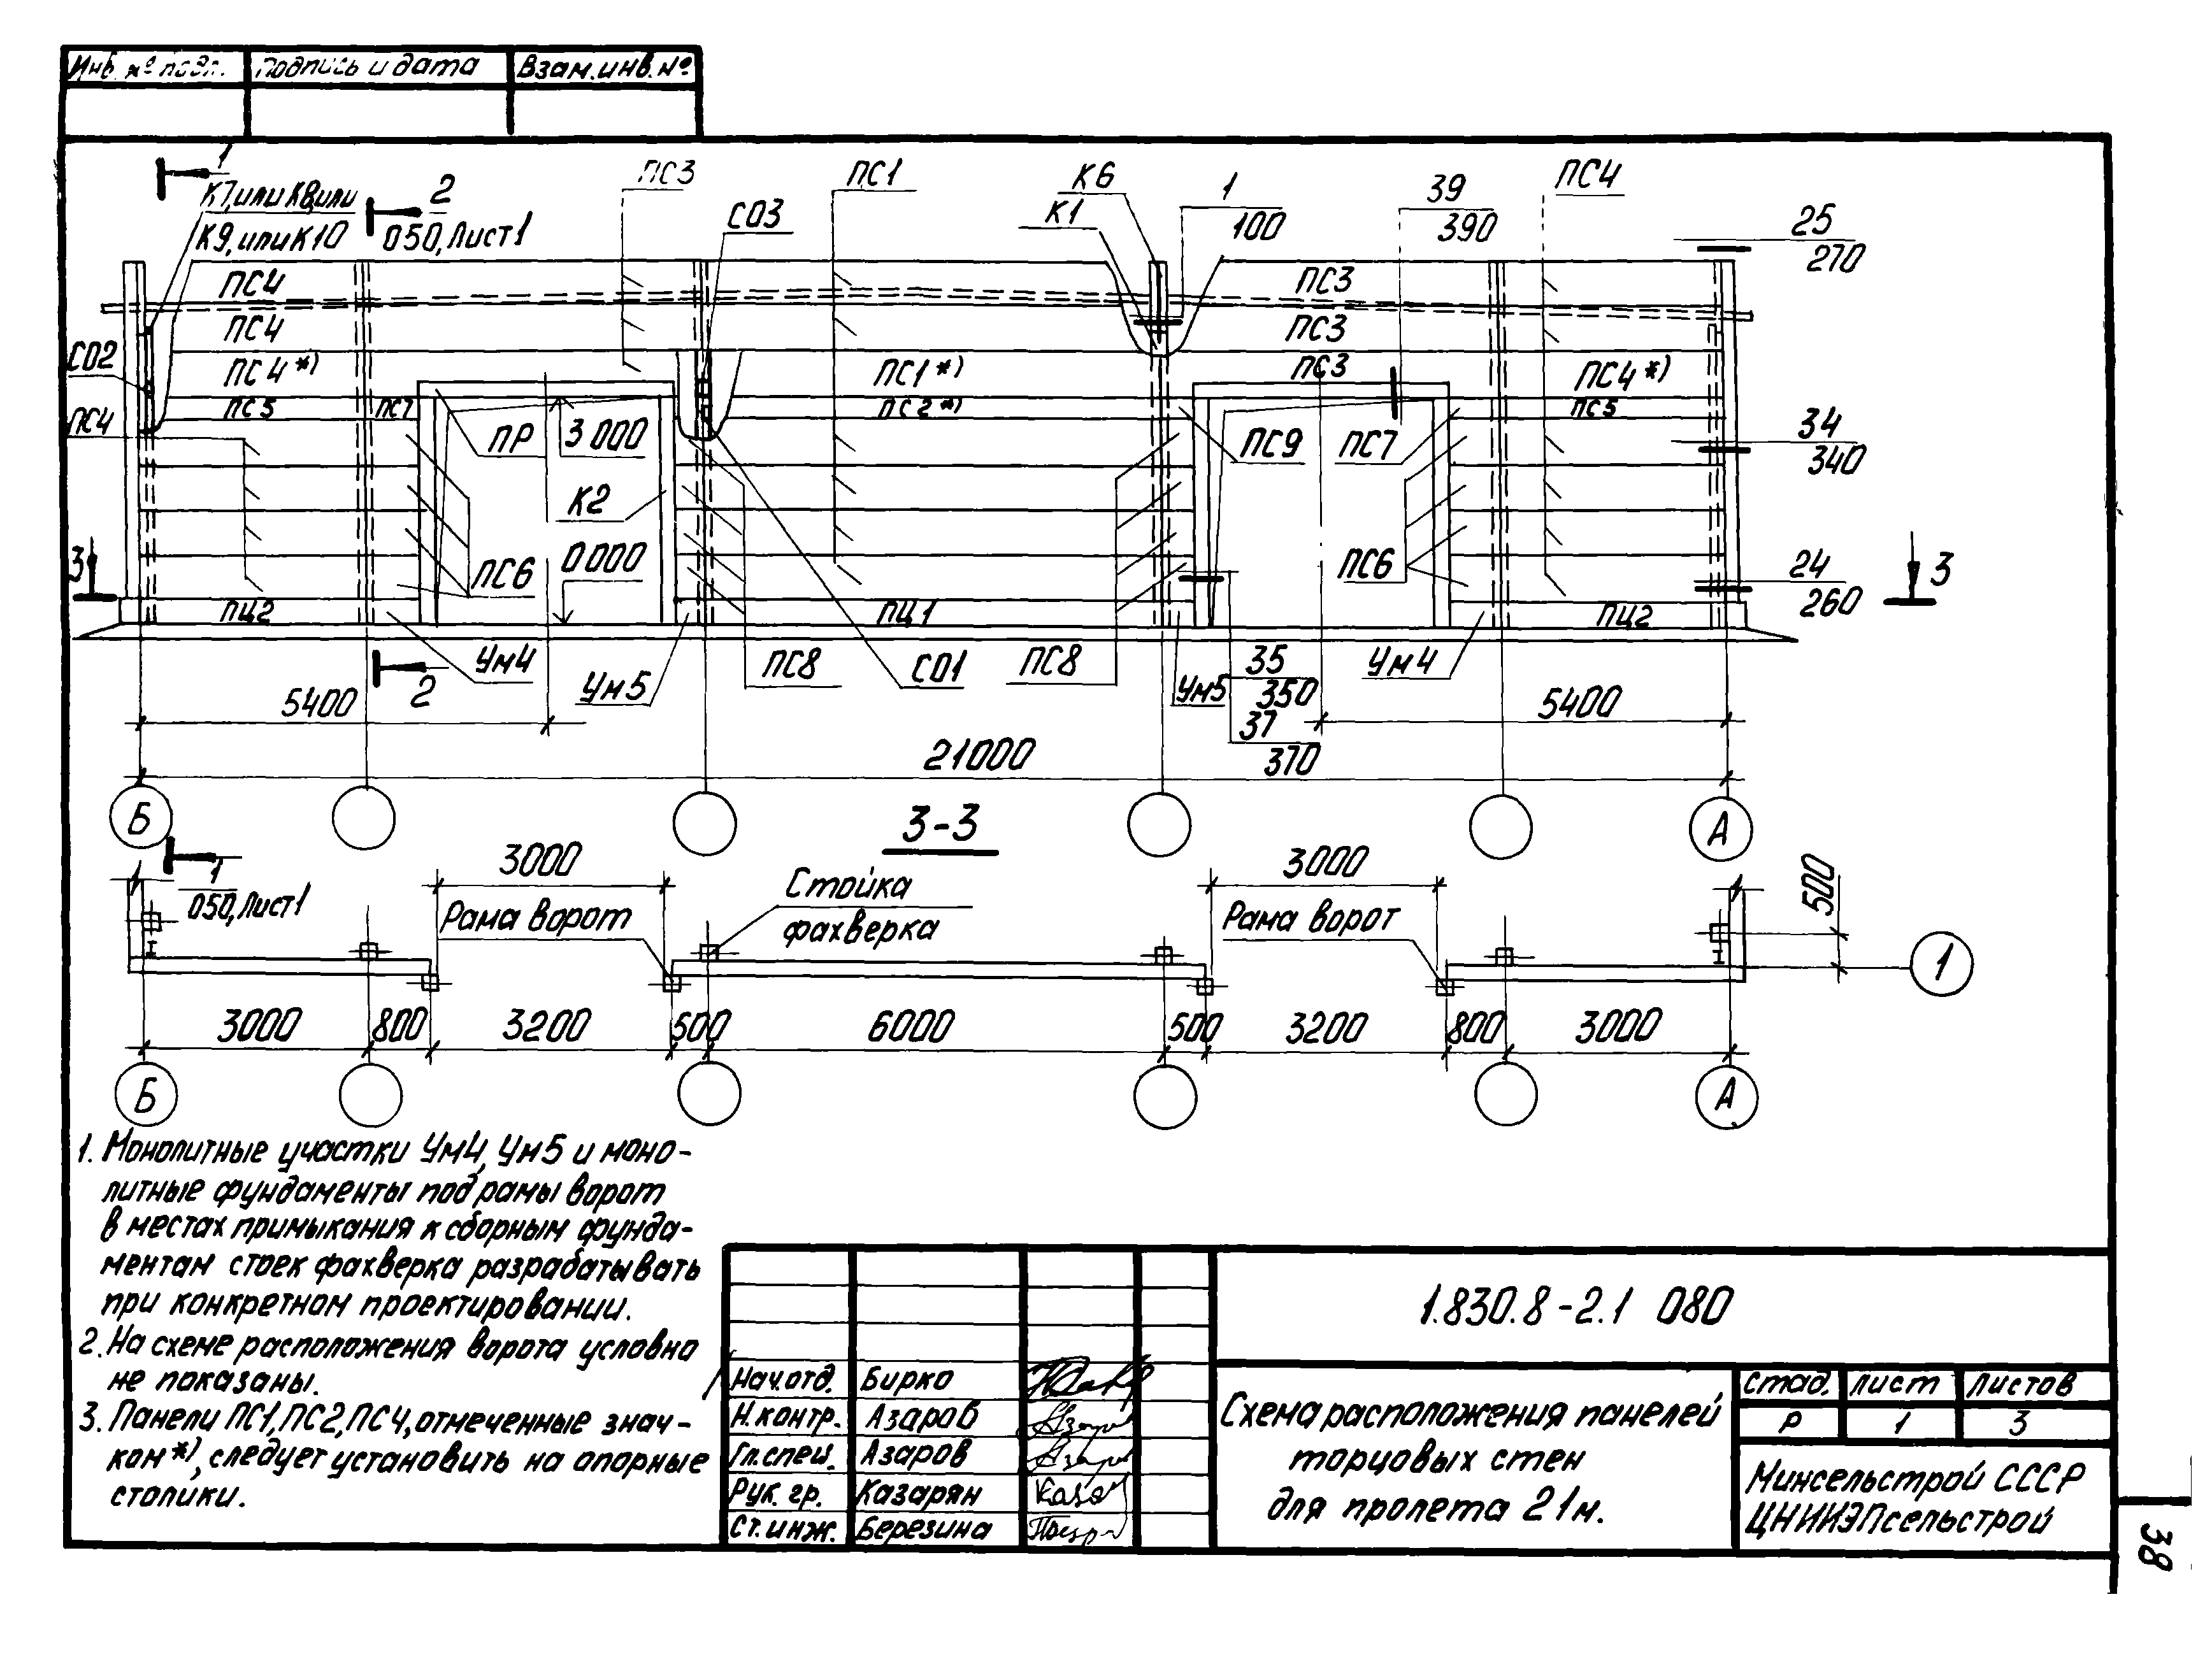 Инв. № подл. Подпись и дата Взам.инв.№
1
К7,или К8,или
К9, или К10
2
050, Лист 1
ПС3
ПС1
С03
К6
К1
1
100
39
390
ПС4
25
270
ПС4
ПС3
ПС4
ПС3
С02
ПС4*)
ПС1*)
ПС3
ПС4*)
ПС5
ПС7
ПС2*)
ПС5
ПС4
ПР
3 000
ПС9
ПС7
34
340
К2
3
ПС6
0 000
ПС6
24
260
3
ПЦ2
ПЦ1
ПЦ2
Ум4
Ум5
ПС8
С01
ПС8
Ум5
35
350
Ум4
2
37
370
5400
5400
21000
Б
А
3-3
1
050, Лист 1
3000
3000
Стойка
фахверка
Рама ворот
Рама ворот
500
1
3000 800 3200 500 6000 500 3200 800 3000
Б
А
1. Монолитные участки Ум4, Ум5 и моно-
литные фундаменты под рамы ворот
в местах примыкания к сборным фунда-
ментам стоек фахверка разрабатывать
при конкретном проектировании.
2. На схеме расположения ворота условно
не показаны.
3. Панели ПС1, ПС2, ПС4, отмеченные знач-
ком*), следует установить на опорные
столики.
1.830.8-2.1 080
Нач.отд. Бирко
Н.контр. Азаров
Гл.спец. Азаров
Рук. гр. Казарян
Ст.инж. Березина
Схема расположения панелей
торцовых стен
для пролета 21м.
стад. лист листов
Р 1 3
Минсельстрой СССР
ЦНИИЭПсельстрой
38